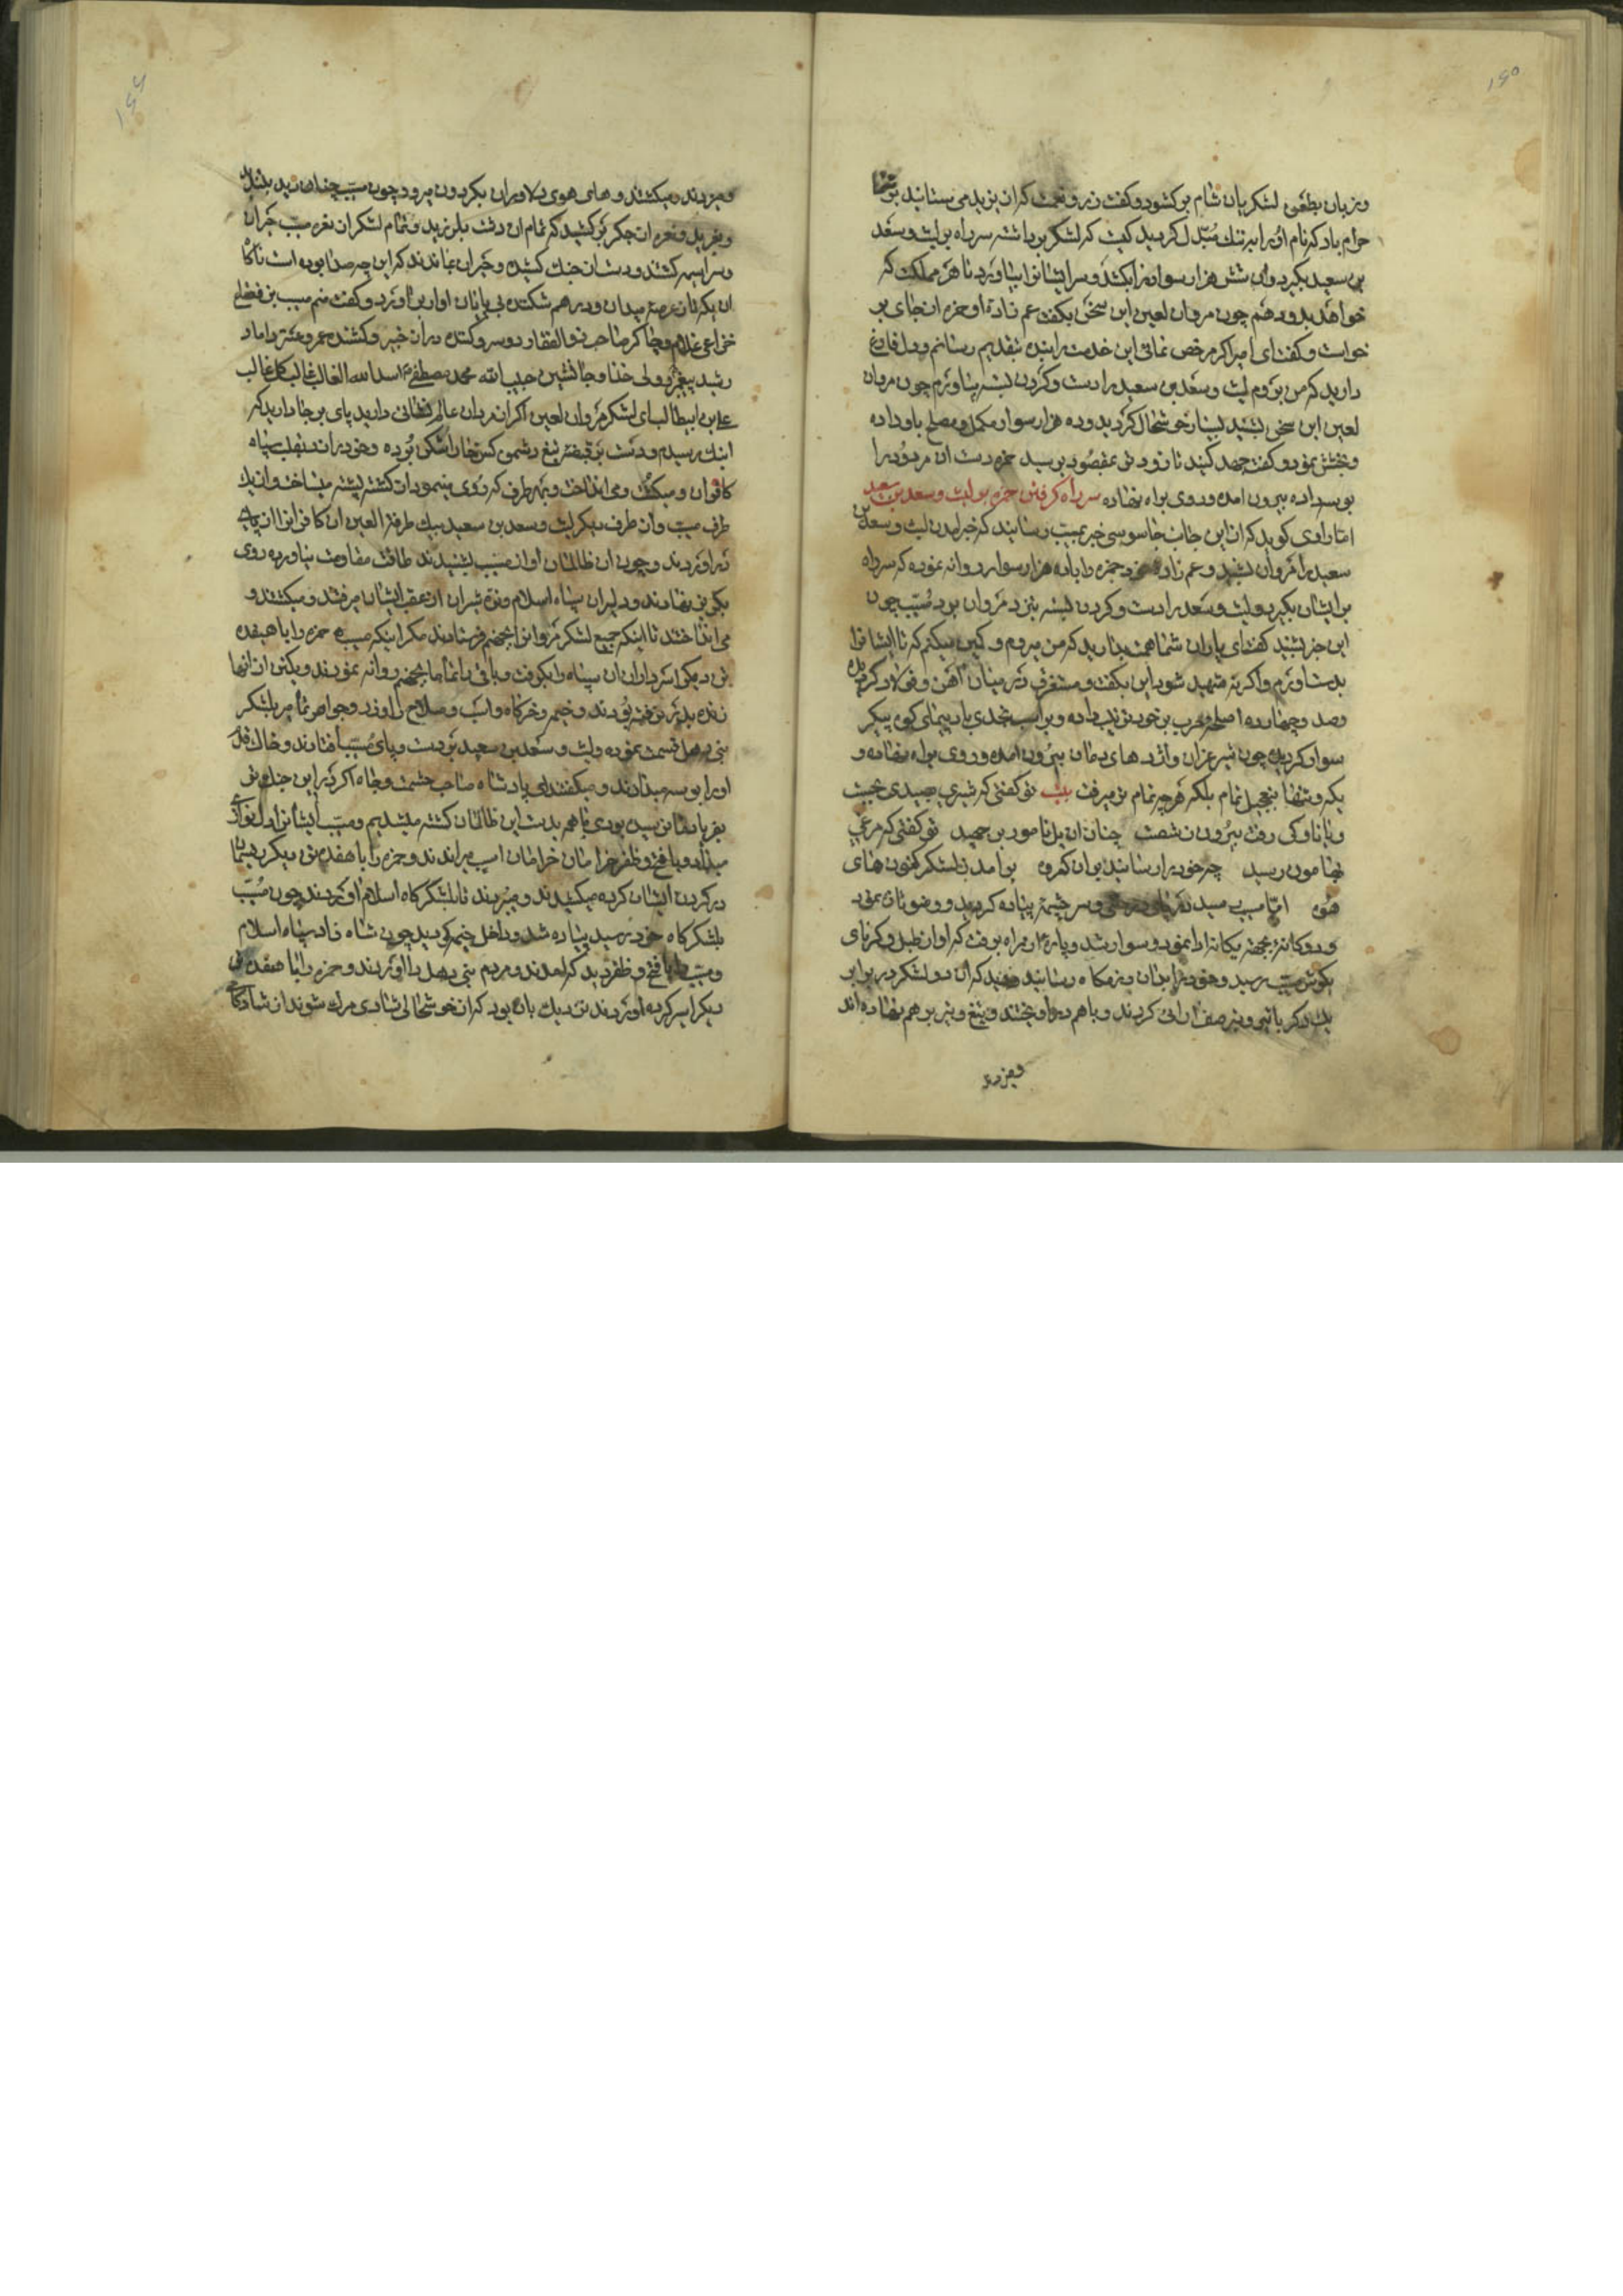 وزبان بطعن لشکریان شام برکشود و کفت زر و نعمت که از یزید می ستانید بر شما
حرام باد که نام او را به ننك مبدل کردید کیست که لشکر برداشته سر راه بر لیث و سعد
بن سعید بکیرد و آن شش هزار سوار را بکشد و سر ایشانرا بیاورد تا هر مملکت که
خواهد بدو دهم چون مروان لعین این سخن بکفت عم زاده او حمزه از جای بر
خواست و کفت ای امیر اکر مرخص نمائی این خدمت را بنده بتقدیم رسانم و دل فارغ
دارید که من بروم لیث و سعد بن سعید را دست و کردن بسته بیاورم چون مروان
لعین این سخن بشنید بسیار خوشحال کردید و ده هزار سوار مکمل و مصلح باو داده
و بخشش نمود و کفت جهد کنید تا زود تر بمقصود برسید حمزه دست ان مردود را
بوسه داده بیرون امده و روی براه نهاده سر راه کرفتن حمزه بر لیث و سعد بن سعید
اما راوی کوید که از این جانب جاسوسی خبر بمسیب رسانید که خبر امدن لیث و سعد بن
سعید را مروان بشنید و عم زاده خود حمزه را با ده هزار سوار روانه نموده که سر راه
بر ایشان بکیرد و لیث و سعد را دست و کردن بسته بنزد مروان برد مسیب چون
این خبر بشنید کفت ای یاران شما همت بدارید که من میروم و کمین میکنم که تا ایشانرا
بدست اورم و اکر نه شهید شود این بکفت و مستغرق در میان آهن و فولاد کردیده
وصد و چهارده اصلحه حرب بر خود ترتیب داده و بر اسب نجدی باد پیمای کوه پیکر
سوار کردید چون شیر غران و اژدهای دمان بیرون امده و روی براه نهاده و
یکه و تنها بتعجیل تمام بلکه هرچه تمام تر میرفت بیت تو کفتی که شیری بصیدی نجست
و یا ناوکی رفت بیرون ز شصت چنان ان یل نامور بر جهید تو کفتی که مرغی
بهامون رسید چه خود را رسانید بر ان کروه بر امد ز لشکر کنون های
هوه اما مسیب و سر چشمهٔ پیاده کردید و وضو تازه نمود
و دوکانه بجهة یکانه ادا نمود و سوار شد و پارهٔ از راه برفت که اواز طبل و کرنای
بکوش مسیب رسید و خود را بدان رزمکاه رسانید دید که ان دو لشکر در برابر
یك دکر با تیر و نیزه صف ارائی کردند و باهم در اویختند و تیغ و تیر بر هم نهاده اند
ومیزدند
ومیزدند و میکشتند و های هوی دلاوران بکردون میرود چون مسیب چنان دید بلند
و بغرید و نعره از جکر برکشید که تمام ان دشت بلرزید و تمام لشکر از نعره مسیب حیران
و سراسیمه کشتند و دست از جنك کشیده و حیران بماندند که این چه صدا بوده است ناکاه
ان یکه تاز عرصهٔ میدان و در هم شکننده بی پایان اواز بر اورد و کفت منم مسیب بن قعقاع
خزاعی غلام و چاکر صاحب ذوالفقار دوسر و کننده در از خیبر و کشنده عمرو عنتر داماد
رشید پیغمبر و ولی خدا و جانشین حبیب الله محمد مصطفی اسد الله الغالب غالب کل غالب
علی بن ابیطالب ای لشکر مروان لعین اکر از مردان عالم نشانی دارید پای بر جا دارید که
اینك رسیدم و دست بر قبضهٔ تیغ دشمن کش خارا شکن بوده و خود را زد بقلب سپاه
کافران و میکشت و می انداخت و بهر طرف که روی مینمود از کشته پشته میساخت و از یك
طرف مسیب و از طرف دیکر لیث و سعد بن سعید بیك طرفة العین ان کافران را از پای
در اوردند و چون ان ظالمان اواز مسیب بشنیدند طاقت مقاومت نیاورده روی
بکریز نهادند و دلیران سپاه اسلام و نره شیران از عقب ایشان میرفتند و میکشتند و
می انداختند تا اینکه جمیع لشکر مروانرا بجهنم فرستادند مکر اینکه مسیب حمزه را با هیفده
تن دیکر از سرداران ان سپاه را بکرفت و باقی را تماما بجهنم روانه نمودند و یکتن از انها
زنده بدر نرفته بودند و خیمه و خرکاه و اسب و صلاح و زر و جواهر تمام بر لشکر
بنی قسمت نموده و لیث و سعد بن سعید بر دست و پای مسیب افتادند و خاك قدم
او را بوسه میدادند و میکفتند ای پادشاه صاحب حشمت و جاه اکر در این جنك تو
بفریاد ما نرسیده بودی ما همه بدست این ظالمان کشته میشدیم و مسیب ایشانرا دل نوازی
میداد و با فتح و ظفر خرامان خرامان اسب میراندند و حمزه را با هفده تن دیکر ریسمان
در کردن ایشان کرده میکشیدند و میبردند تا بلشکر کاه اسلام اوردند چون مسیب
بلشکر کاه خود رسید پیاده شد و داخل خیمه کردید چون شاه زاد سپاه اسلام
و مسیب را با فتح و ظفر دید که امدند و مردم بنی را اوردند و حمزه را با هفده تن
دیکر اسیر کرده اوردند نزدیك بان بود که از خوشحالی شادی مرك شوند از شادکامی